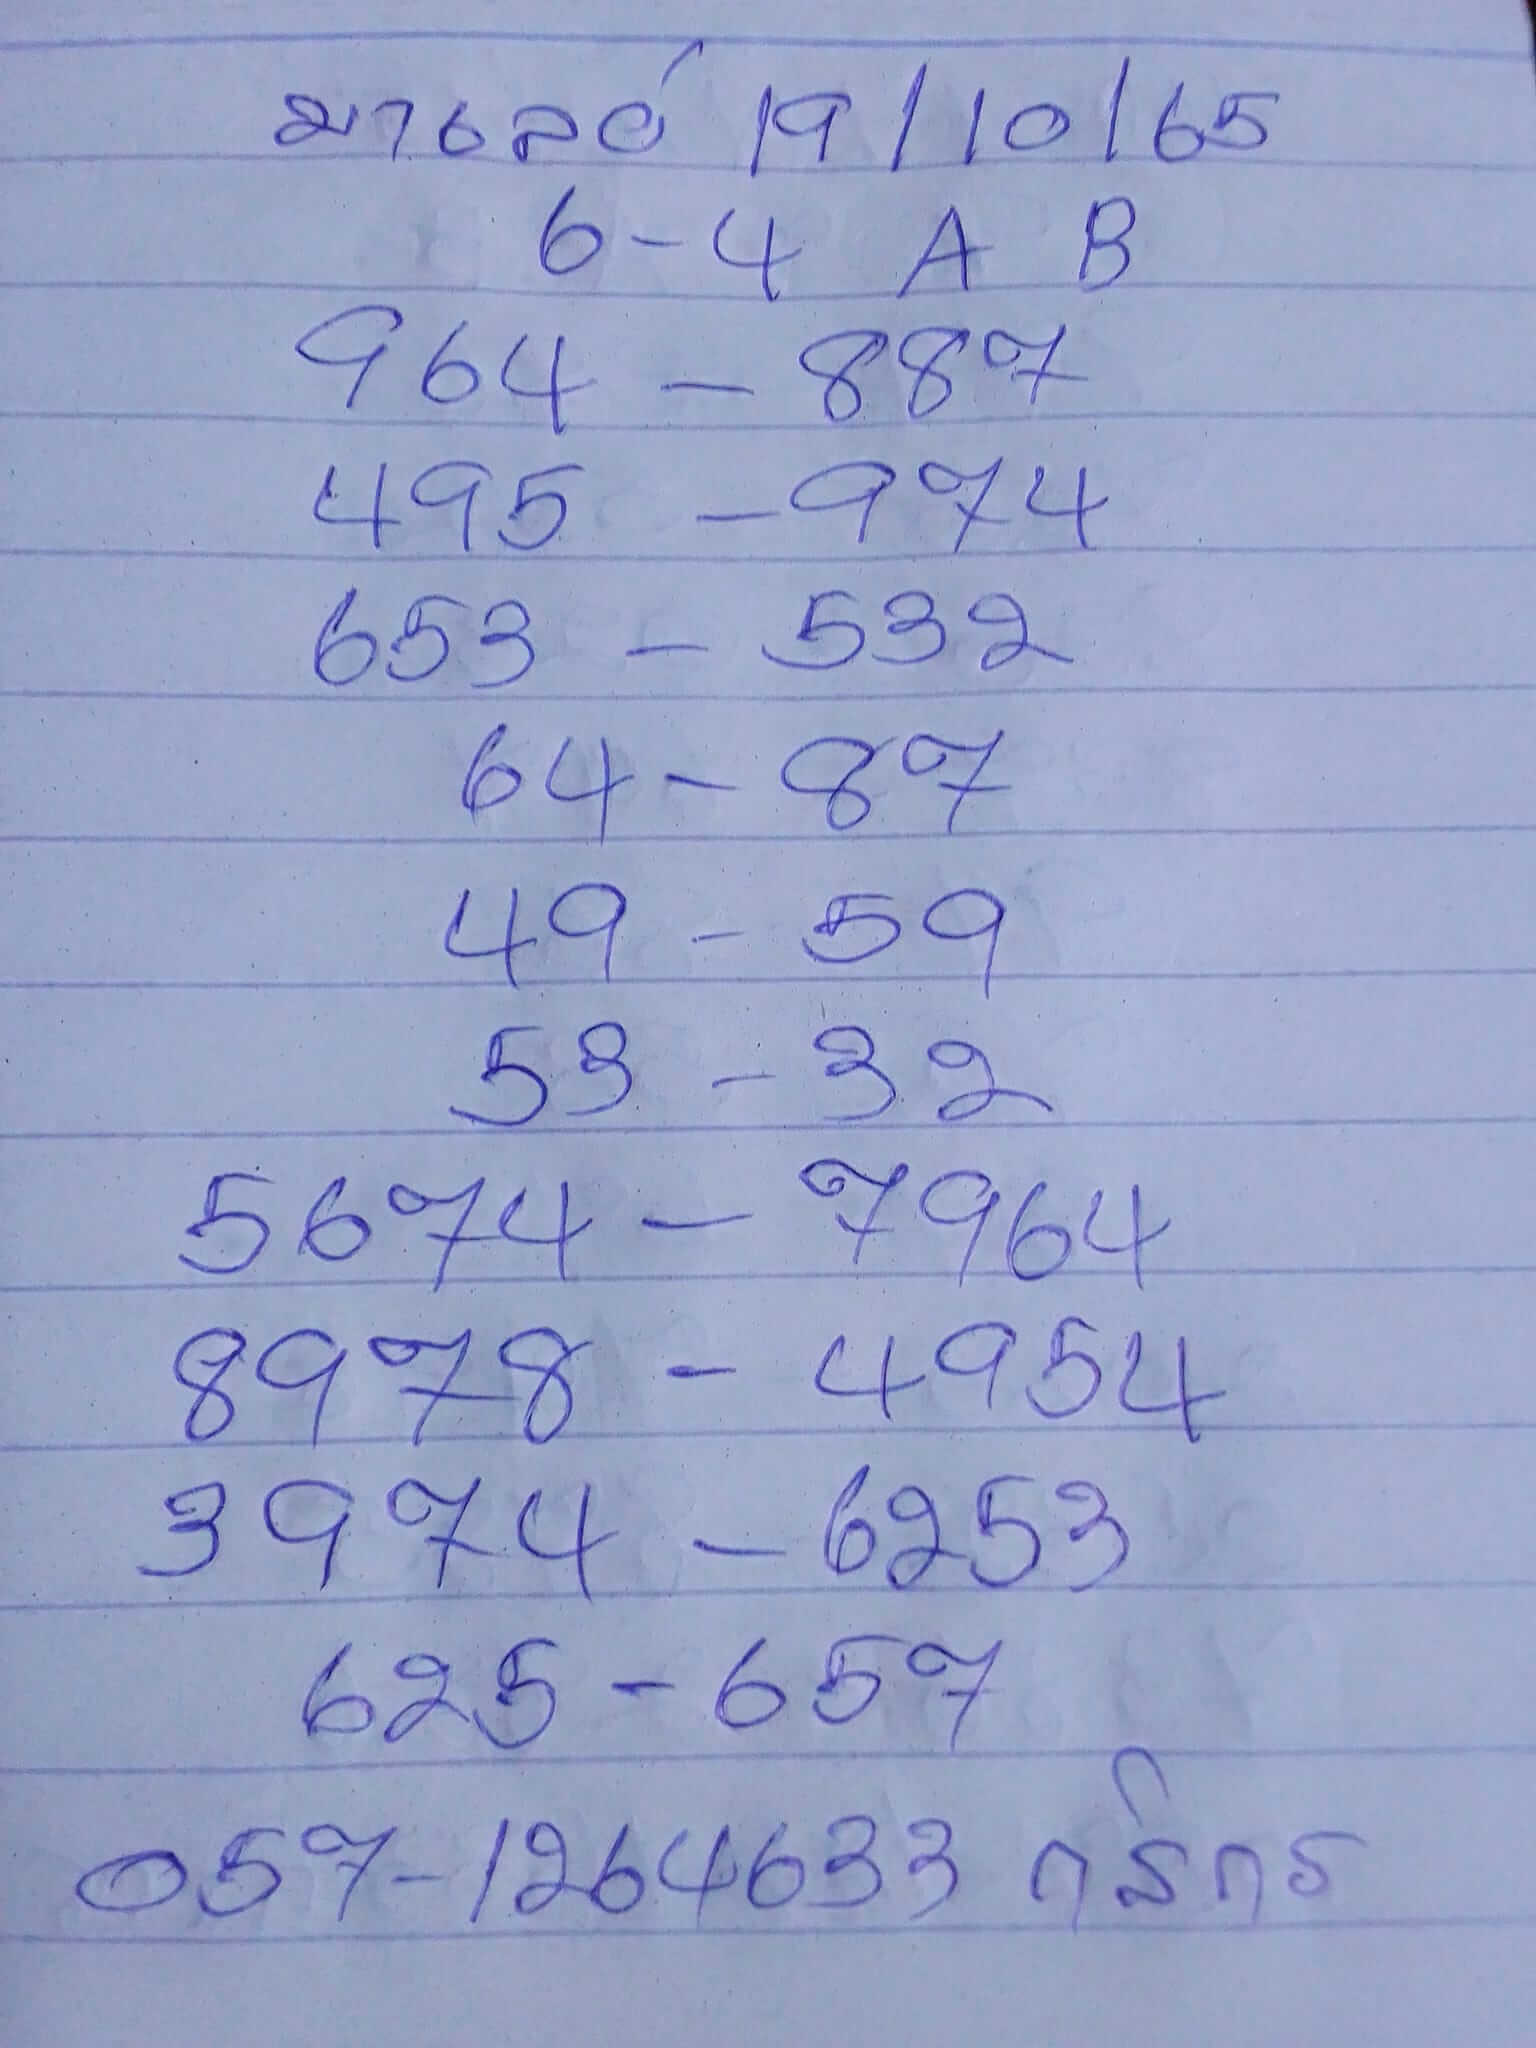 มาเลย์ 19/10/65
6-4 A B
964-887
495-974
653-532
64-87
49-59
53-32
5674-7964
8978-4954
3974-6253
625-657
057-1264633 กสิกร